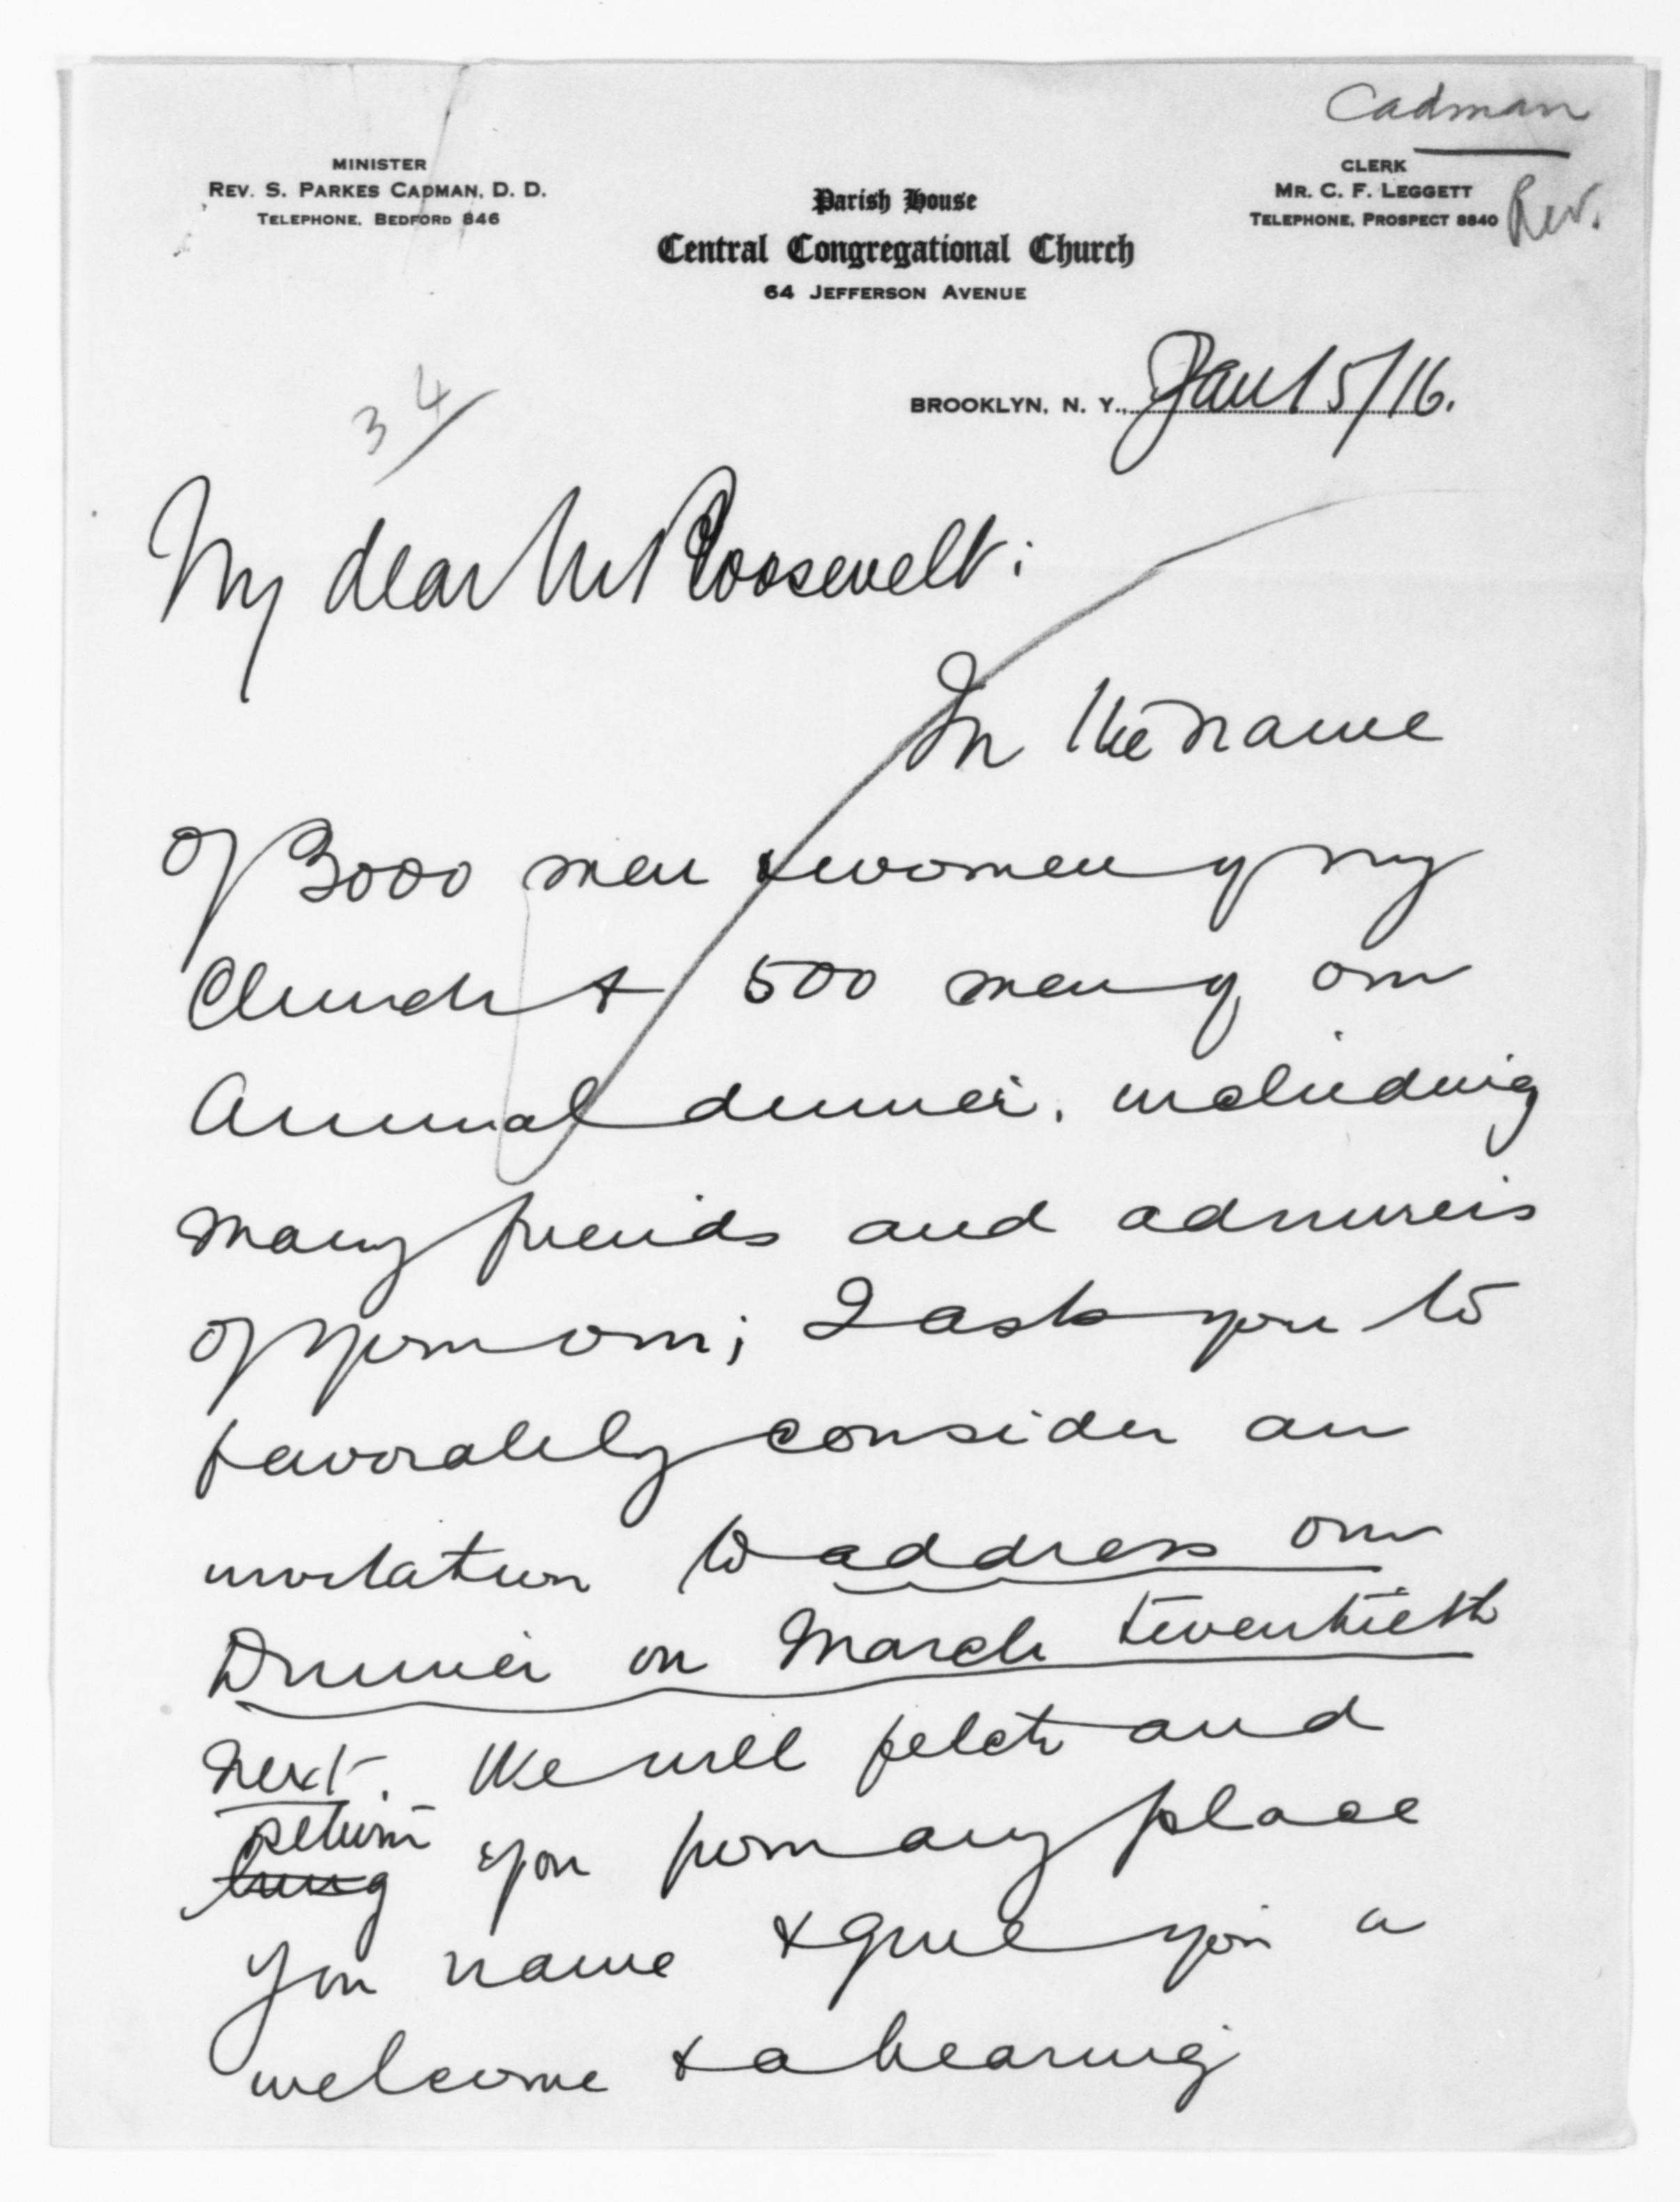 Cadman
MINISTER
REV. S. PARKES CADMAN, D. D.
TELEPHONE, BEDFORD 846
CLERK
MR. C. F. LEGGETT
TELEPHONE, PROSPECT 8840
Rev.
Parish House
Central Congregational Church
64 JEFFERSON AVENUE
BROOKLYN, N. Y., Jan 15/16.
34
My dear Mr Roosevelt:
In the name
of 3000 men & women of my
Church & 500 men of our
Annual dinner, including
many friends and admirers
of your own; I ask you to
favorably consider an
invitation to address our
Dinner on March twentieth
next. We will fetch and
return
bring you from any place
you name & give you a
welcome & a hearing